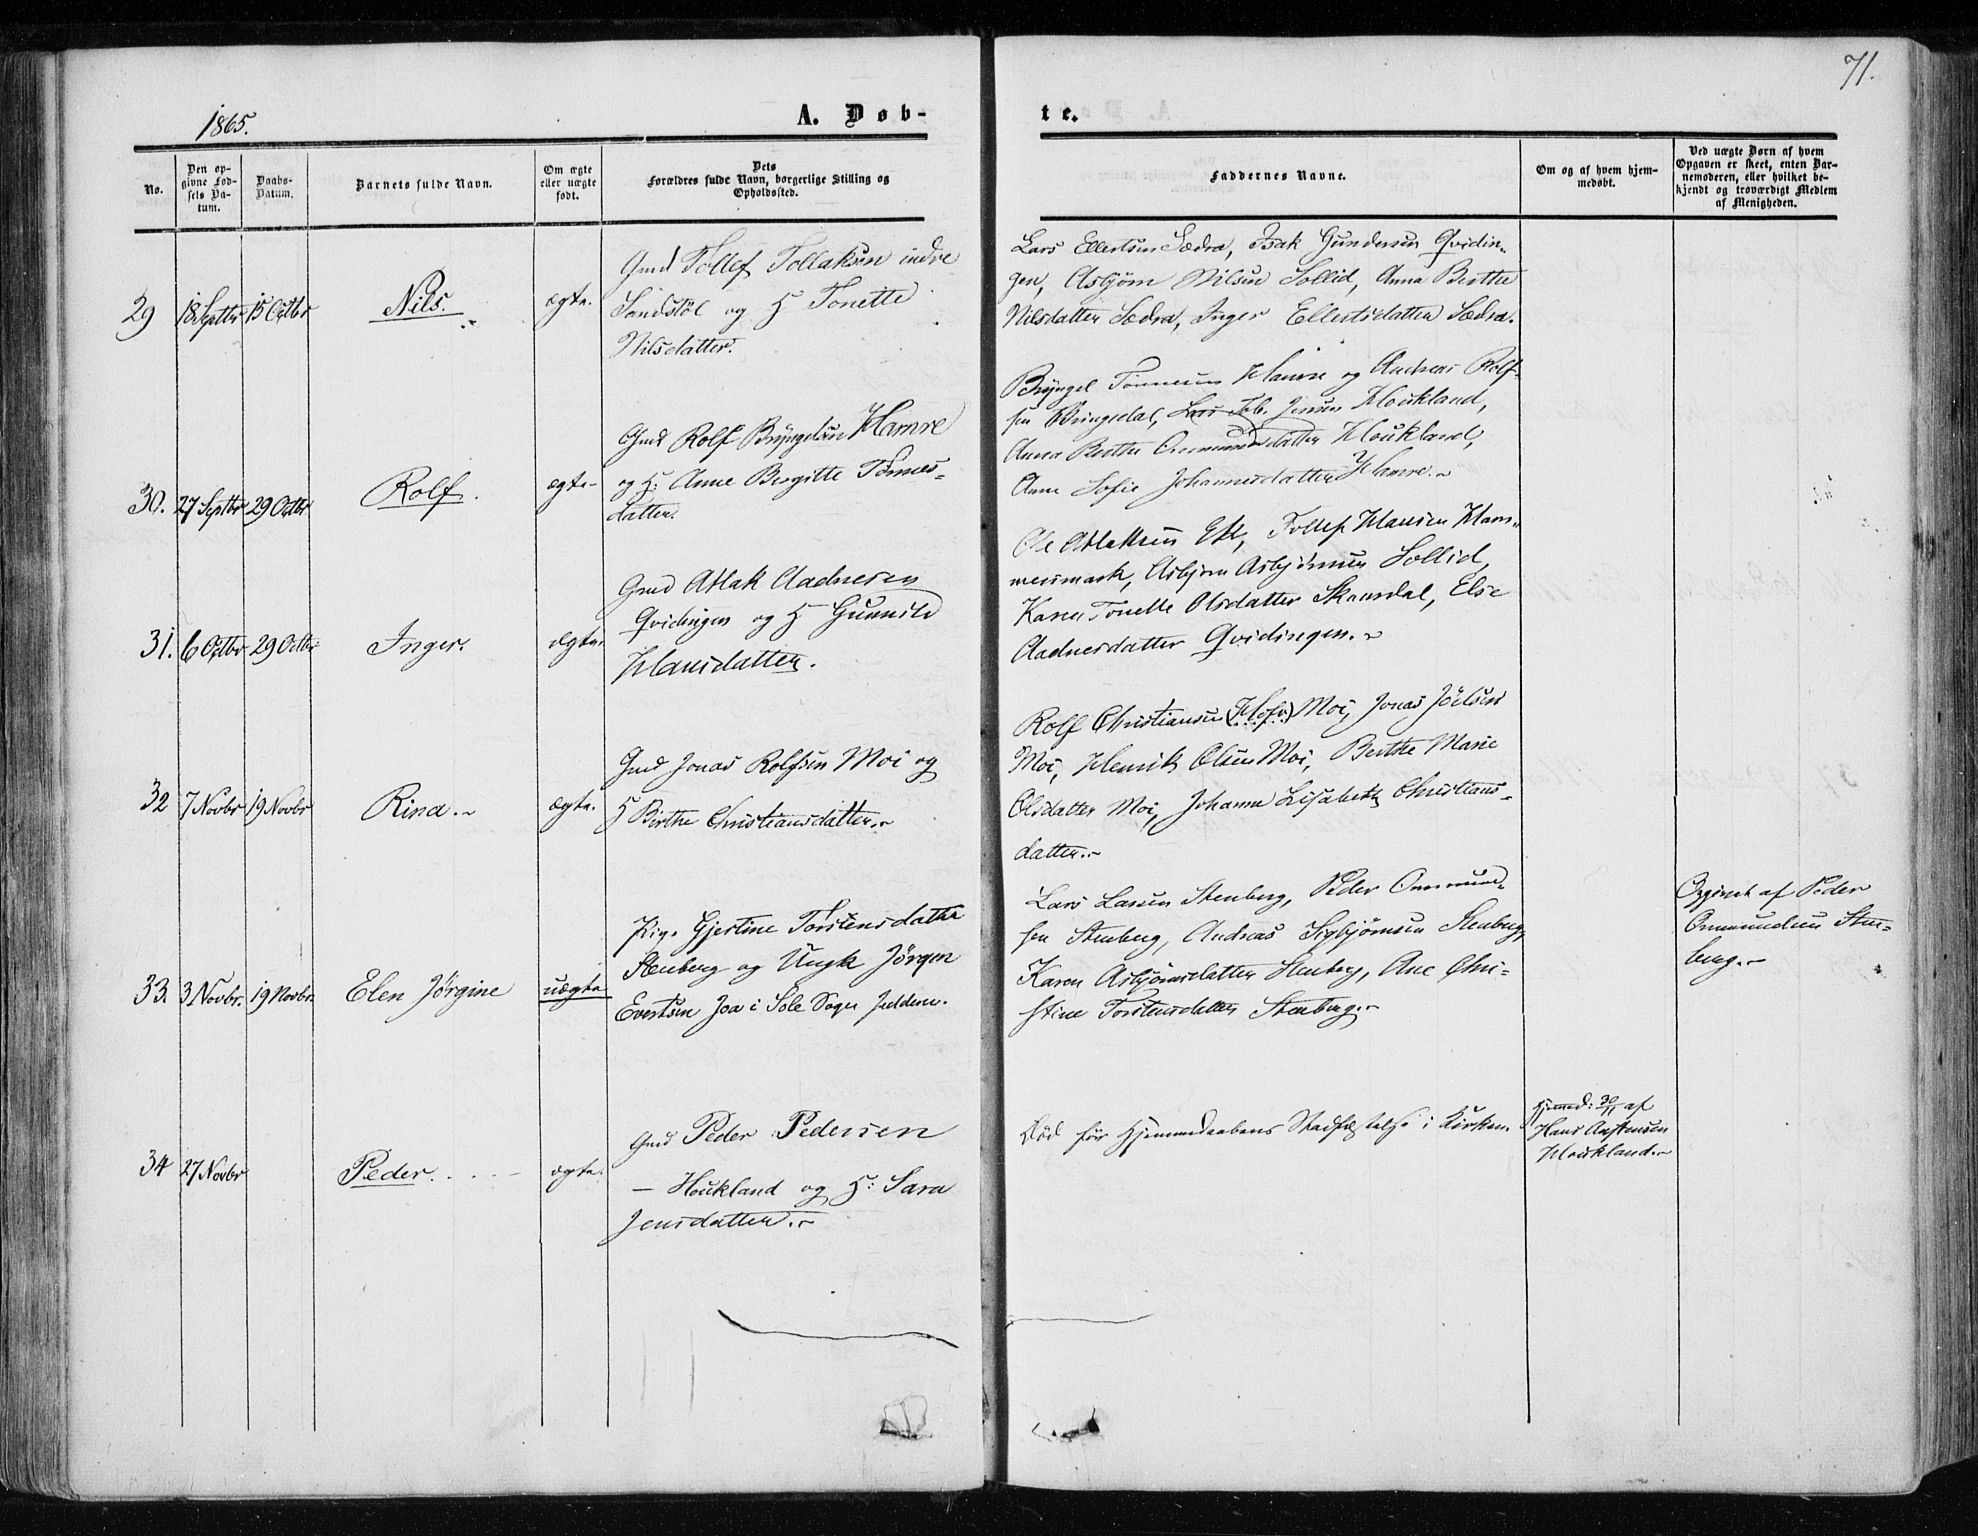 71.
1865.
A. Døb-
te.
No.
Den op-
givne Fød-
sels Da-
tum.
Daabs-
Datum.
Barnets fulde Navn.
Om ægte
eller uægte
født.
Dets
Forældres fulde Navn, borgerlige Stilling og
Opholdssted.
Faddernes Navne.
Om og af hvem hjem-
medøbt.
Ved uægte Børn af hvem
Opgaven er skeet, enten Bar-
nemoderen, eller hvilket be-
kjendt og troværdigt Medlem
af Menigheden.
29
18 Septbr
15 Octbr
Nils.
ægte.
Gmd Tollef Tollaksen indre
Sandstøl og H Tonette
Nilsdatter.
Lars Ellertsen Sædra, Isak Gundersen Qvidin-
gen, Asbjørn Nilsen Sollid, Anna Berthe
Nilsdatter Sædra, Inger Ellertsdatter Sædra.
30.
27 Septbr
29 Octbr
Rolf.
ægte-
Gmd Rolf Bryngelsen Hamre
og H: Anne Birgitte Tønnes-
datter.
Bryngel Tønnesen Hamre og Andreas Rolf-
sen Bringedal, Lars Job. Jensen Houkland,
Anna Berthe Ommundsdatter Houkland,
Anne Sofie Johannesdatter Hamre.
31.
6 Octbr
29 Octbr
Inger.
ægte.
Gmd Atlak Aadnesen
Qvidingen og H Gunnild
Hansdatter.
Ole Atlaksen Eke, Tollef Hansen Ham-
mersmark, Asbjørn Asbjørnsen Sollid,
Karen Tonette Olsdatter Skaardal, Else
Aadnesdatter Qvidingen.
32
7 Novbr
19 Novbr
Rina.
ægte.
Gmd Jonas Rolfsen Moi og
H Birthe Christiansdatter.
Rolf Christiansen (Hofs) Moi, Jonas Joelsen
Moi, Henrik Olsen Moi, Berthe Marie
Olsdatter Moi, Johanne Lisabeth Christians-
datter.
33.
3 Novbr.
19 Novbr.
Elen Jørgine
uægte
Pige Gjertine Torstensdatter
Stenberg og Ungk Jørgen
Evertsen Joa i Sole Sogn Jedderen.
Lars Larsen Stenberg, Peder Ommund-
sen Stenberg, Andreas Sigbjørnsen Stenberg,
Karen Asbjørnsdatter Stenberg, Ane Chri-
stine Torstensdatter Stenberg.
Opgivet af Peder
Ommundsen Sten-
berg.
34
27 Novbr
Peder.
ægte.
Gmd Peder Pedersen
- Houkland og H: Sara
Jensdatter.
Død før Hjemmedaabens Stadfæstelse i Kirken.
Hjemmed: 30/11 af
Hans Aastensen
Houkland.